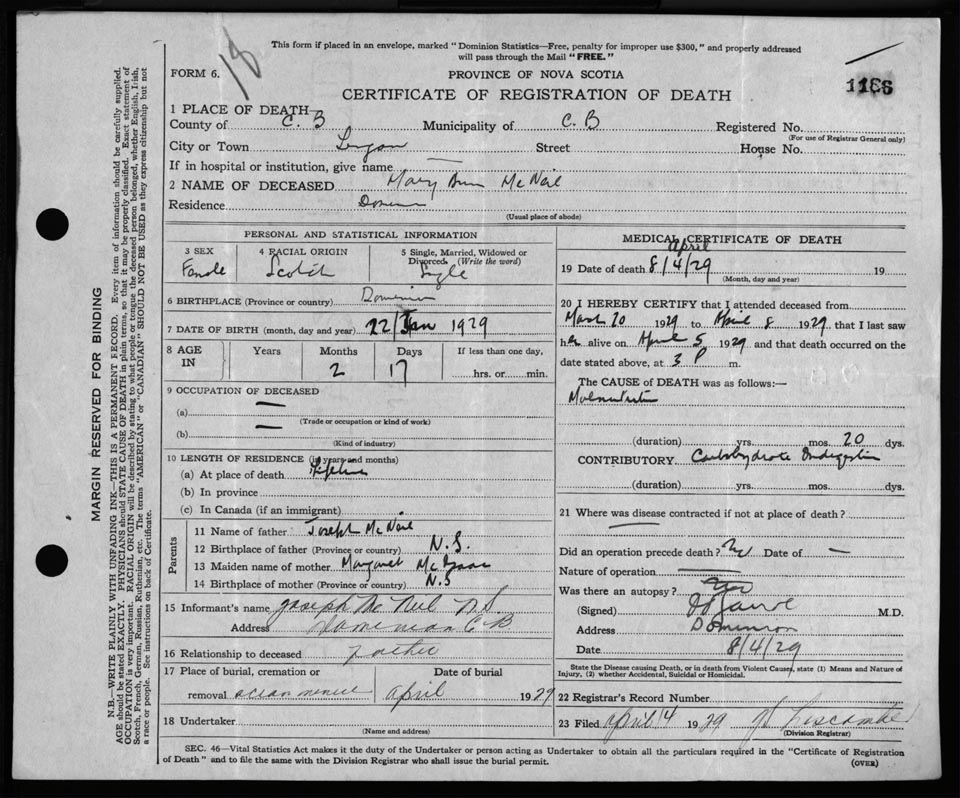 18
This form if placed in an envelope, marked "Dominion Statistics—Free, penalty for improper use $300," and properly addressed
will pass through the Mail "FREE."
FORM 6.
PROVINCE OF NOVA SCOTIA
1186
CERTIFICATE OF REGISTRATION OF DEATH
1 PLACE OF DEATH—
County of C. B Municipality of C. B Registered No.
(For use of Registrar General only)
City or Town Lingan Street House No.
If in hospital or institution, give name —
2 NAME OF DECEASED Mary Ann McNeil
Residence Dominion
(Usual place of abode)
PERSONAL AND STATISTICAL INFORMATION
3 SEX
Female
4 RACIAL ORIGIN
Scotch
5 Single, Married, Widowed or
Divorced. (Write the word)
Single
6 BIRTHPLACE (Province or country) Dominion
7 DATE OF BIRTH (month, day and year) 22/Jan 1929
8 AGE
IN
Years
Months
2
Days
17
If less than one day,
hrs. or min.
9 OCCUPATION OF DECEASED
(a) —
(Trade or occupation or kind of work)
(b) —
(Kind of industry)
10 LENGTH OF RESIDENCE (in years and months)
(a) At place of death Lifetime
(b) In province
(c) In Canada (if an immigrant)
Parents
11 Name of father Joseph McNeil
12 Birthplace of father (Province or country) N.S.
13 Maiden name of mother Margaret McIsaac
14 Birthplace of mother (Province or country) N.S
15 Informant's name Joseph Mc Neil N.S.
Address Dominion C B
16 Relationship to deceased father
17 Place of burial, cremation or
removal
Date of burial
April 1929
18 Undertaker
(Name and address)
MEDICAL CERTIFICATE OF DEATH
April
19 Date of death 8/4/29 19
(Month, day and year)
20 I HEREBY CERTIFY that I attended deceased from
March 20 1929 to April 8 1929 that I last saw
her alive on April 5 1929 and that death occurred on the
date stated above, at 3 P m.
The CAUSE OF DEATH was as follows:—
Malnutrition
(duration) yrs. mos. 20 dys.
CONTRIBUTORY Carbohydrate Indigestion
(duration) yrs. mos. dys.
21 Where was disease contracted if not at place of death?
—
Did an operation precede death? Date of —
Nature of operation —
Was there an autopsy?
(Signed) M.D.
Address Dominion
Date 8/4/29
State the Disease causing Death, or in death from Violent Causes, state (1) Means and Nature of
Injury, (2) whether Accidental, Suicidal or Homicidal.
22 Registrar's Record Number
23 Filed April 14 1929 Liscombe
(Division Registrar)
SEC. 46—Vital Statistics Act makes it the duty of the Undertaker or person acting as Undertaker to obtain all the particulars required in the "Certificate of Registration
of Death" and to file the same with the Division Registrar who shall issue the burial permit.
(OVER)
MARGIN RESERVED FOR BINDING
N.B.—WRITE PLAINLY WITH UNFADING INK—THIS IS A PERMANENT RECORD. Every item of information should be carefully supplied.
AGE should be stated EXACTLY. PHYSICIANS should STATE CAUSE OF DEATH in plain terms, so that it may be properly classified. Exact statement of
OCCUPATION is very important. RACIAL ORIGIN will be described by stating to what people or tongue the deceased person belonged, whether English, Irish,
Scotch, French, German, Russian, Ruthenian, etc. The terms "AMERICAN" or "CANADIAN" SHOULD NOT BE USED as they express citizenship but not
a race or people. See instructions on back of Certificate.